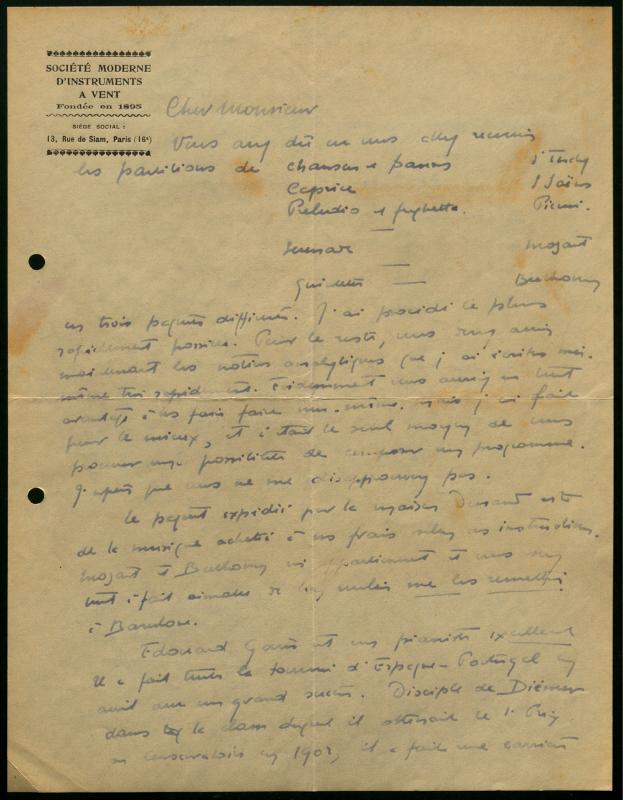 SOCIÉTÉ MODERNE
D'INSTRUMENTS
A VENT
Fondée en 1895
SIÈGE SOCIAL :
13, Rue de Siam, Paris (16e)
Cher Monsieur
Vous avez dû en chez recevoir
les partitions de chanson et danses d'Indy
Caprice St Saëns
Preludio e fughetta. Pierné.
Serenade Mozart
Quintette Beethoven
en trois paquets différents. J'ai procédé le plus
rapidement possible. Pour le reste, vous
maintenant les notices analytiques que j'ai écrites moi-
même très rapidement. Evidemment vous auriez eu tout
avantage à les faire faire vous-même. Mais j'ai fait
pour le mieux, et c'était le seul moyen de vous
possibilité de composer vos programmes.
J'espère que vous ne me désapprouvez pas.
Le paquet expédié par la maison Durand est
de la musique achetée à vos frais selon vos instructions.
Mozart et Beethoven m'appartiennent et vous
tout à fait aimable de bien vouloir me les remettre
à Barcelone.
Edouard Garès est un pianiste excellent
Il a fait toute la tournée d'Espagne-Portugal en
avril avec un grand succès. Disciple de Diémer
dans la classe duquel il obtenait le 1er Prix
au Conservatoire en 1902, il a fait une carrière